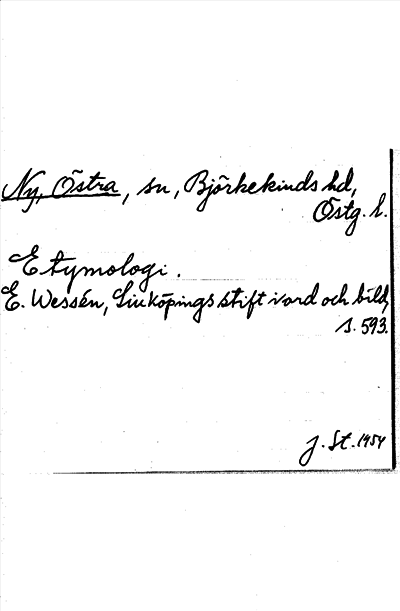 Ny, Östra, sn, Björkekinds hd,
Östg. l.
Etymologi.
E. Wessén, Linköpings stift i ord och bild,
s. 593.
J. St. 1954